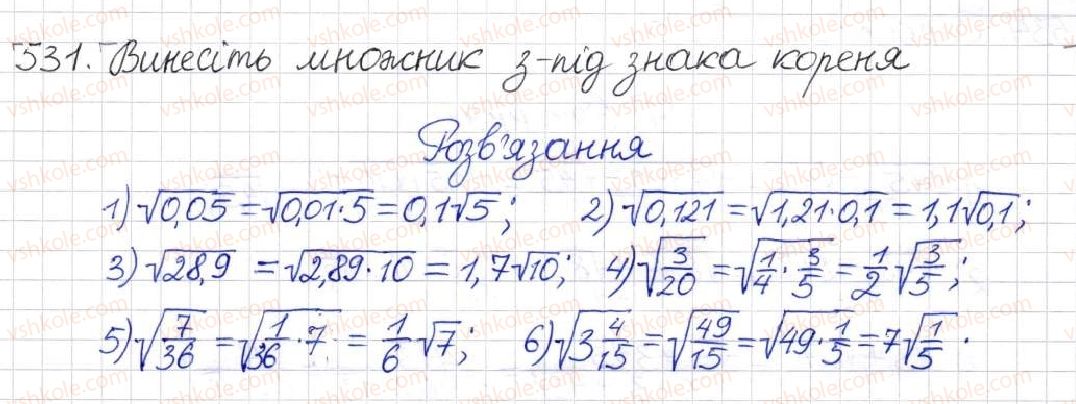 531. Винесіть множник з-під знака кореня
Розв'язання
1) √0,05 = √0,01·5 = 0,1√5; 2) √0,121 = √1,21·0,1 = 1,1√0,1;
3) √28,9 = √2,89·10 = 1,7√10; 4) √3/20 = √1/4·3/5 = 1/2 √3/5;
5) √7/36 = √1/36·7 = 1/6 √7; 6) √3 4/15 = √49/15 = √49·1/5 = 7√1/5.